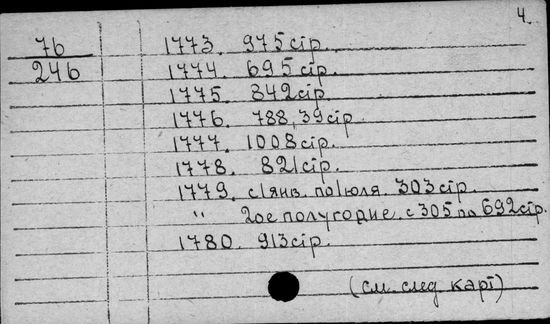 4.
76 1773. 975 стр.
246 1774. 695 стр.
1775. 842 стр.
1776. 788, 39 стр.
1777. 1008 стр.
1778. 821 стр.
1779. с 1 янв. по 1 июля. 303 стр.
" 2ое полугодие. с 305 по 692 стр.
1780. 913 стр.
(см. след карт)